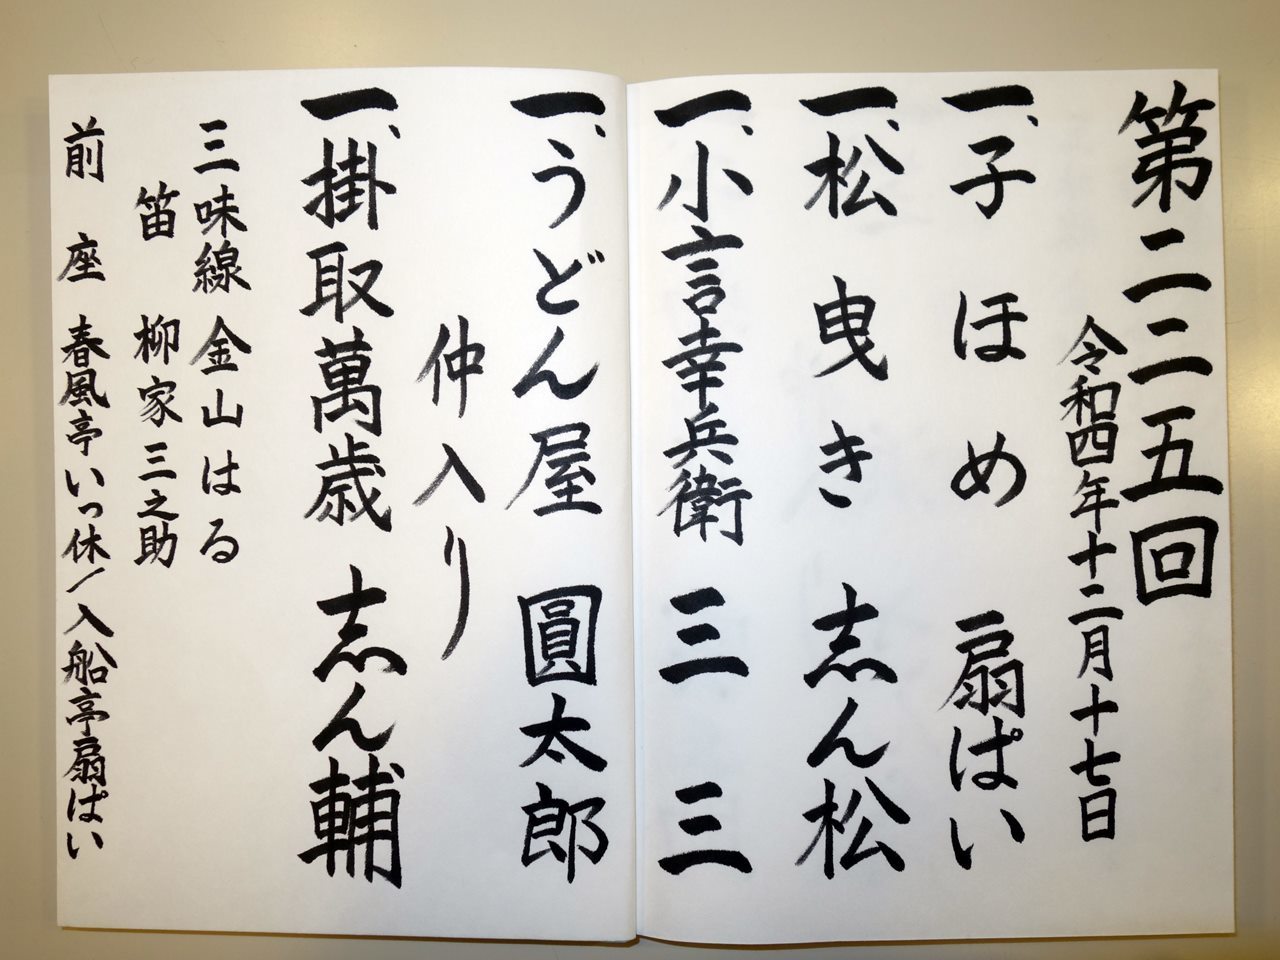 第二二五回
令和四年十二月十七日
一、子ほめ 扇ぱい
一、松曳き 志ん松
一、小言幸兵衛 三三
一、うどん屋 圓太郎
仲入り
一、掛取萬歳 志ん輔
三味線 金山はる
笛 柳家三之助
前座 春風亭いっ休/入船亭扇ぱい